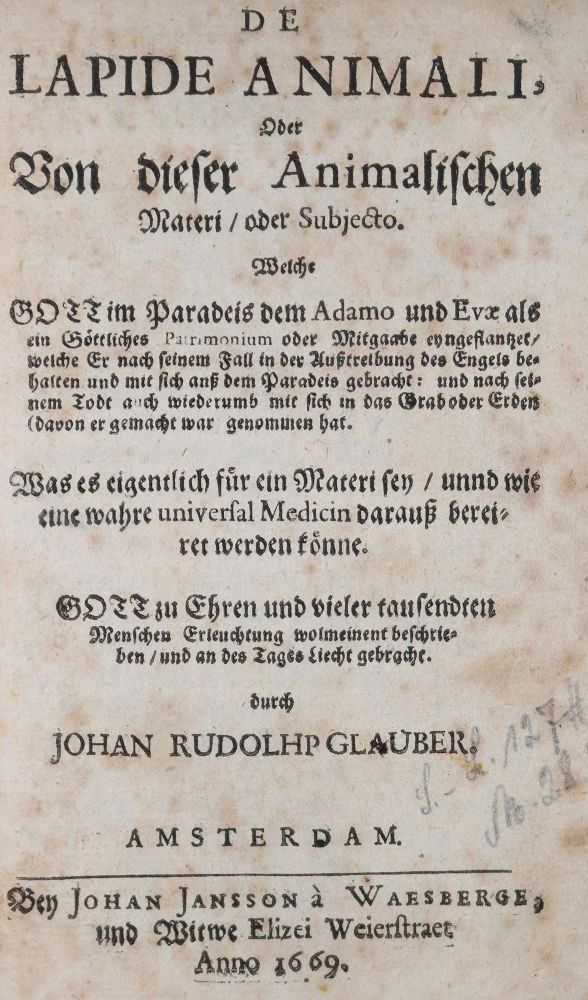 DE
LAPIDE ANIMALI,
Oder
Von dieser Animalischen
Materi / oder Subjecto.
Welche
GOTT im Paradeis dem Adamo und Evæ als
ein Göttliches Patrimonium oder Mitgaabe eyngeflantzet /
welche Er nach seinem Fall in der Außtreibung des Engels be-
halten und mit sich auß dem Paradeis gebracht: und nach sei-
nem Todt auch wiederumb mit sich in das Grab oder Erden
(davon er gemacht war genommen hat.
Was es eigentlich für ein Materi sey / unnd wie
eine wahre universal Medicin darauß berei-
tet werden könne.
GOTT zu Ehren und vieler tausendten
Menschen Erleuchtung wolmeinent beschrie-
ben / und an des Tages Liecht gebracht.
durch
JOHAN RUDOLHP GLAUBER.
S.- L. 127
No. 28
AMSTERDAM.
Bey JOHAN JANSSON à WAESBERGE,
und Witwe Elizei Weierstraet
Anno 1669.